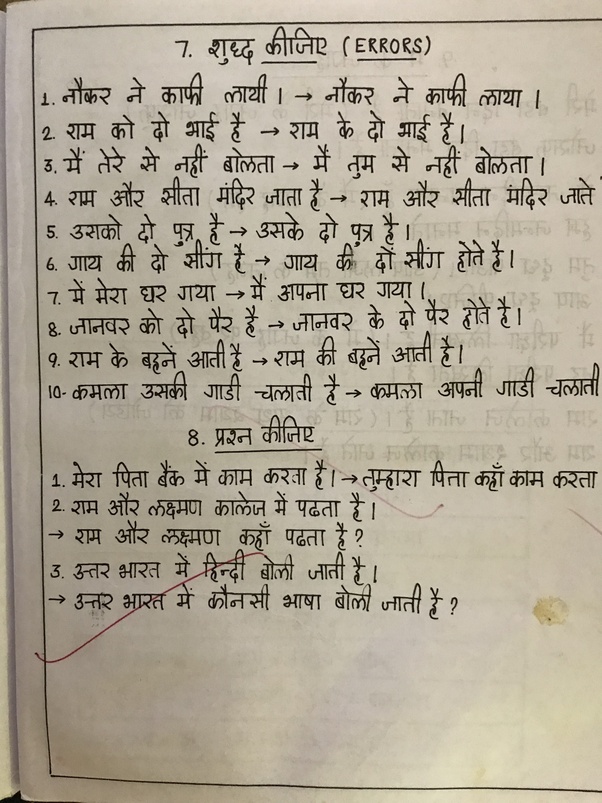 7. शुध्द कीजिए (ERRORS)
1. नौकर ने काफी लायी। → नौकर ने काफी लाया।
2. राम को दो भाई है → राम के दो भाई है।
3. मैं तेरे से नहीं बोलता → मैं तुम से नहीं बोलता।
4. राम और सीता मंदिर जाता है → राम और सीता मंदिर जाते
5. उसको दो पुत्र है → उसके दो पुत्र है।
6. गाय की दो सींग है → गाय की दो सींग होते है।
7. में मेरा घर गया → मैं अपना घर गया।
8. जानवर को दो पैर है → जानवर के दो पैर होते है।
9. राम के बहनें आती है → राम की बहनें आती है।
10- कमला उसकी गाडी चलाती है → कमला अपनी गाडी चलाती
8. प्रश्न कीजिए
1. मेरा पिता बैंक में काम करता है। → तुम्हारा पिता कहाँ काम करता
2. राम और लक्ष्मण कालेज में पढता है।
→ राम और लक्ष्मण कहाँ पढता है?
3. उत्तर भारत में हिन्दी बोली जाती है।
→ उत्तर भारत में कौनसी भाषा बोली जाती है?